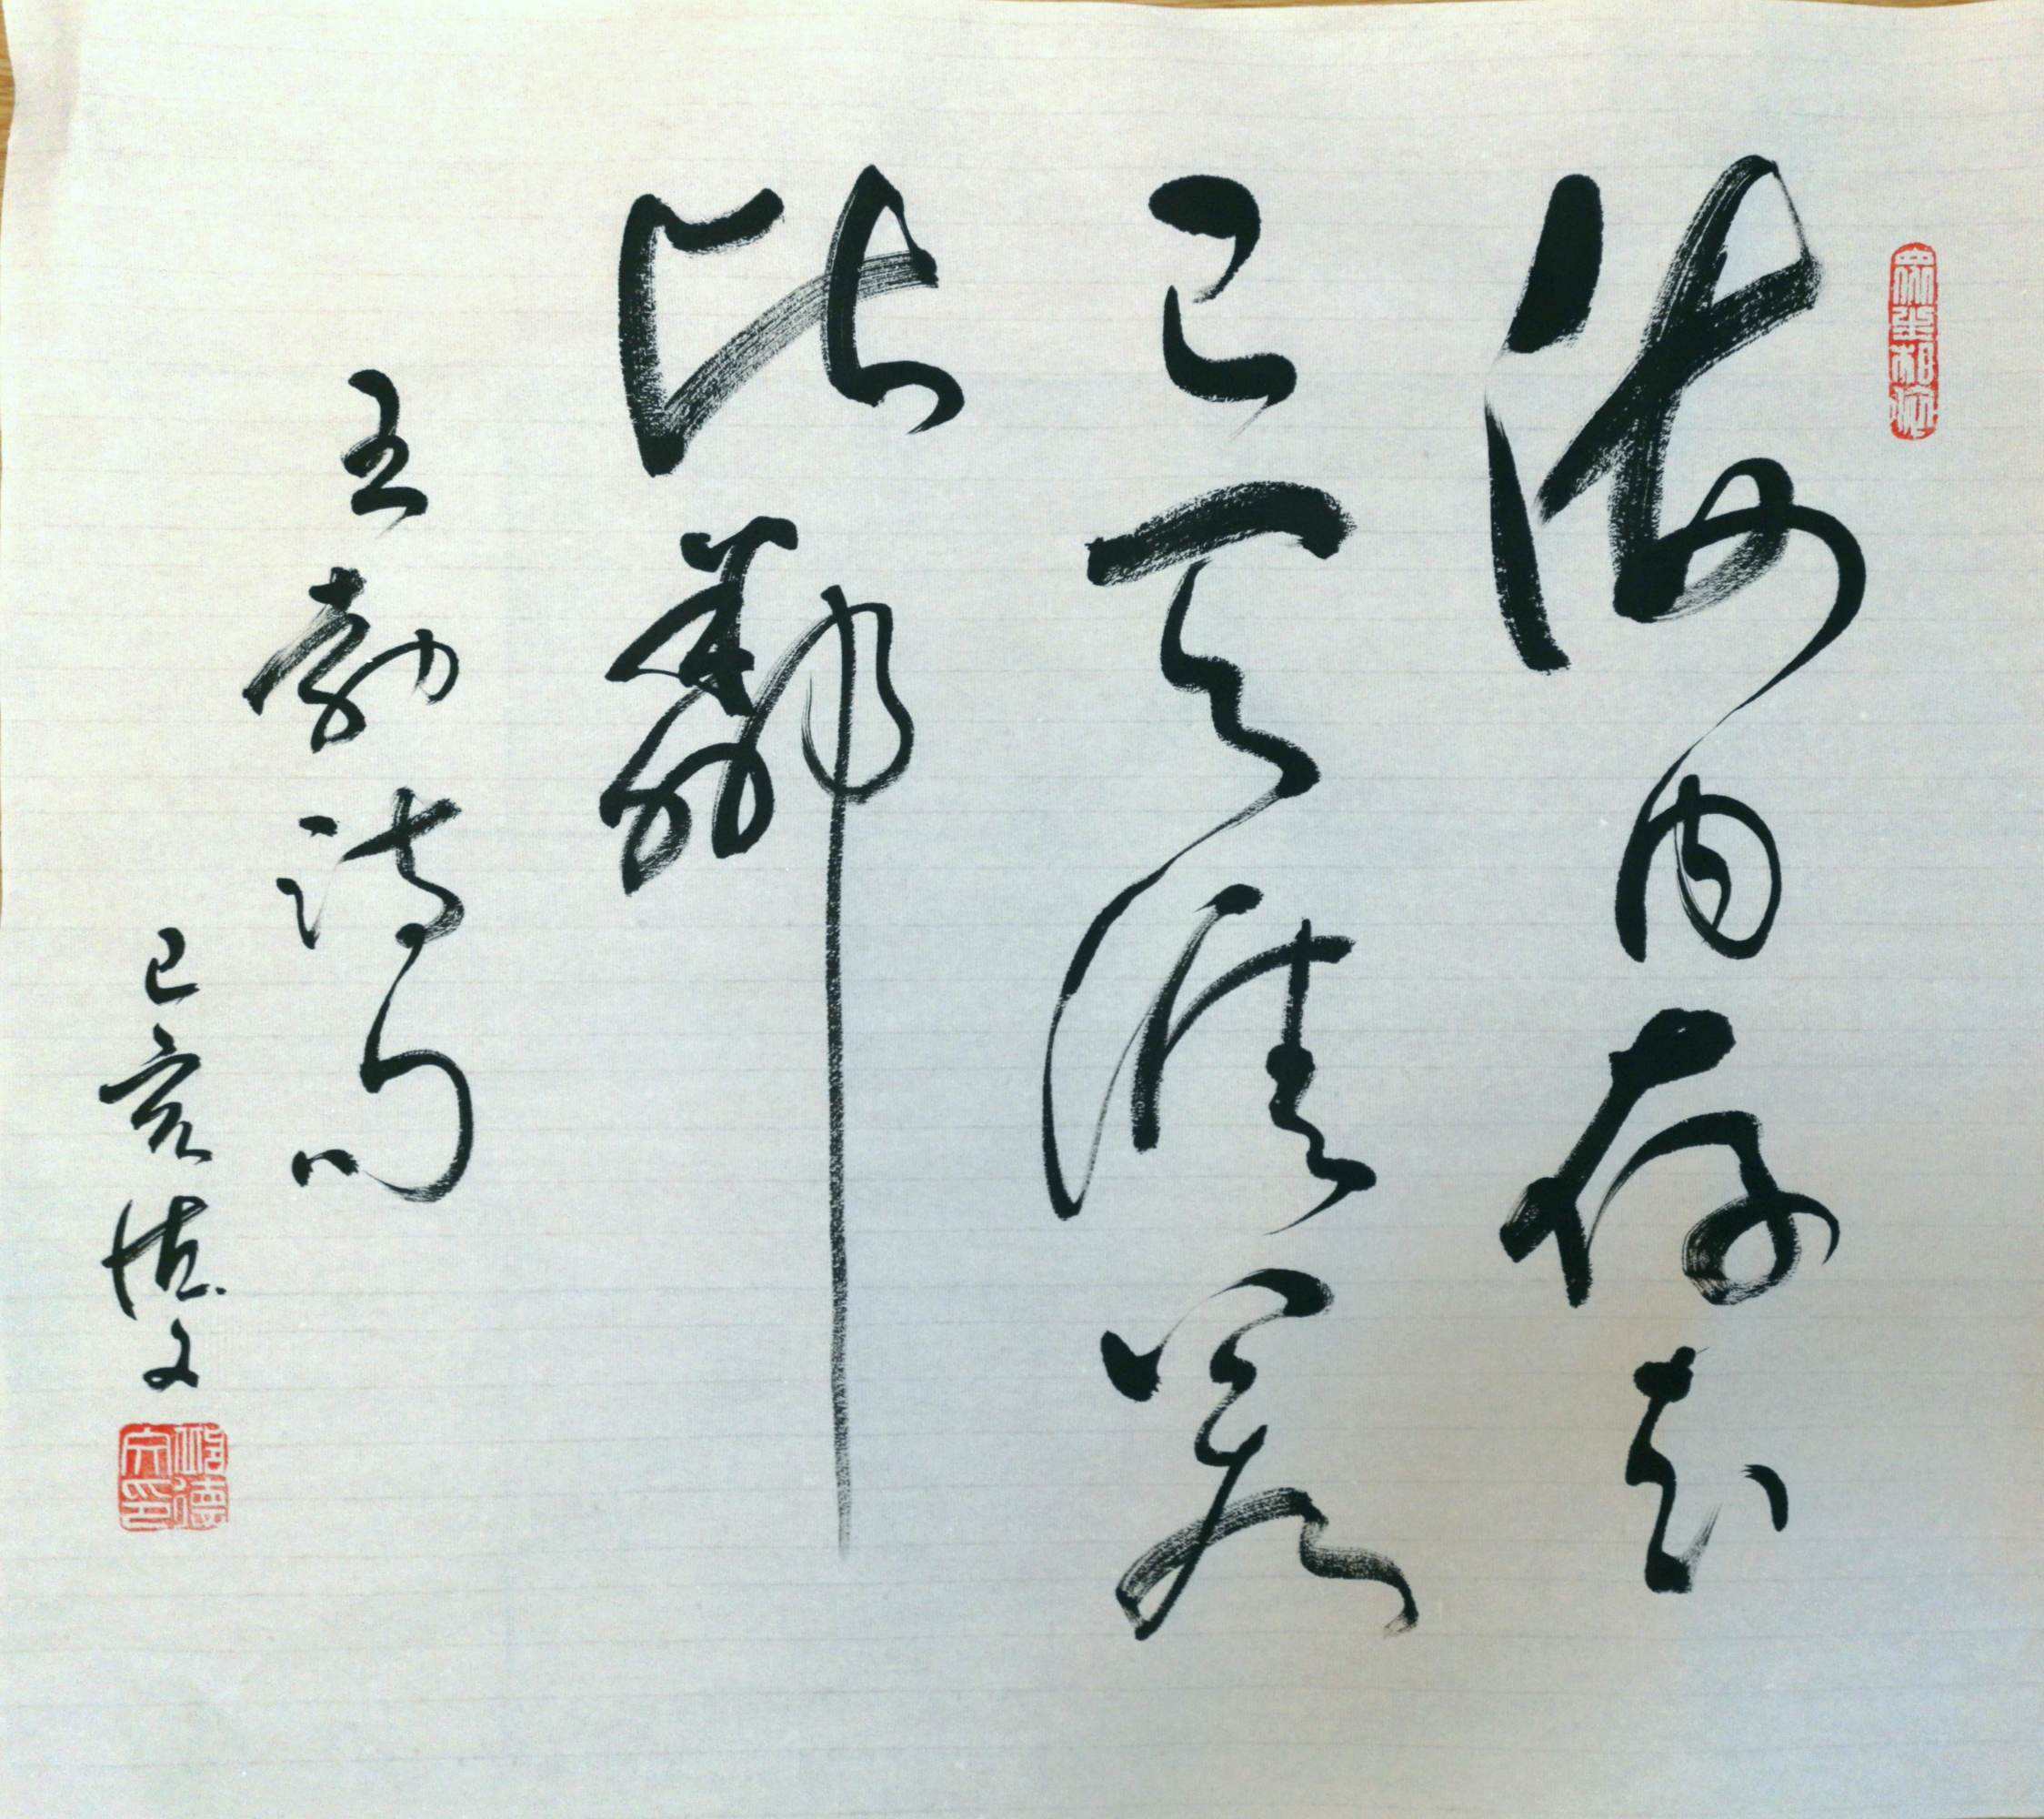 海内存知
己天涯若
比鄰
王勃詩句
己亥德文